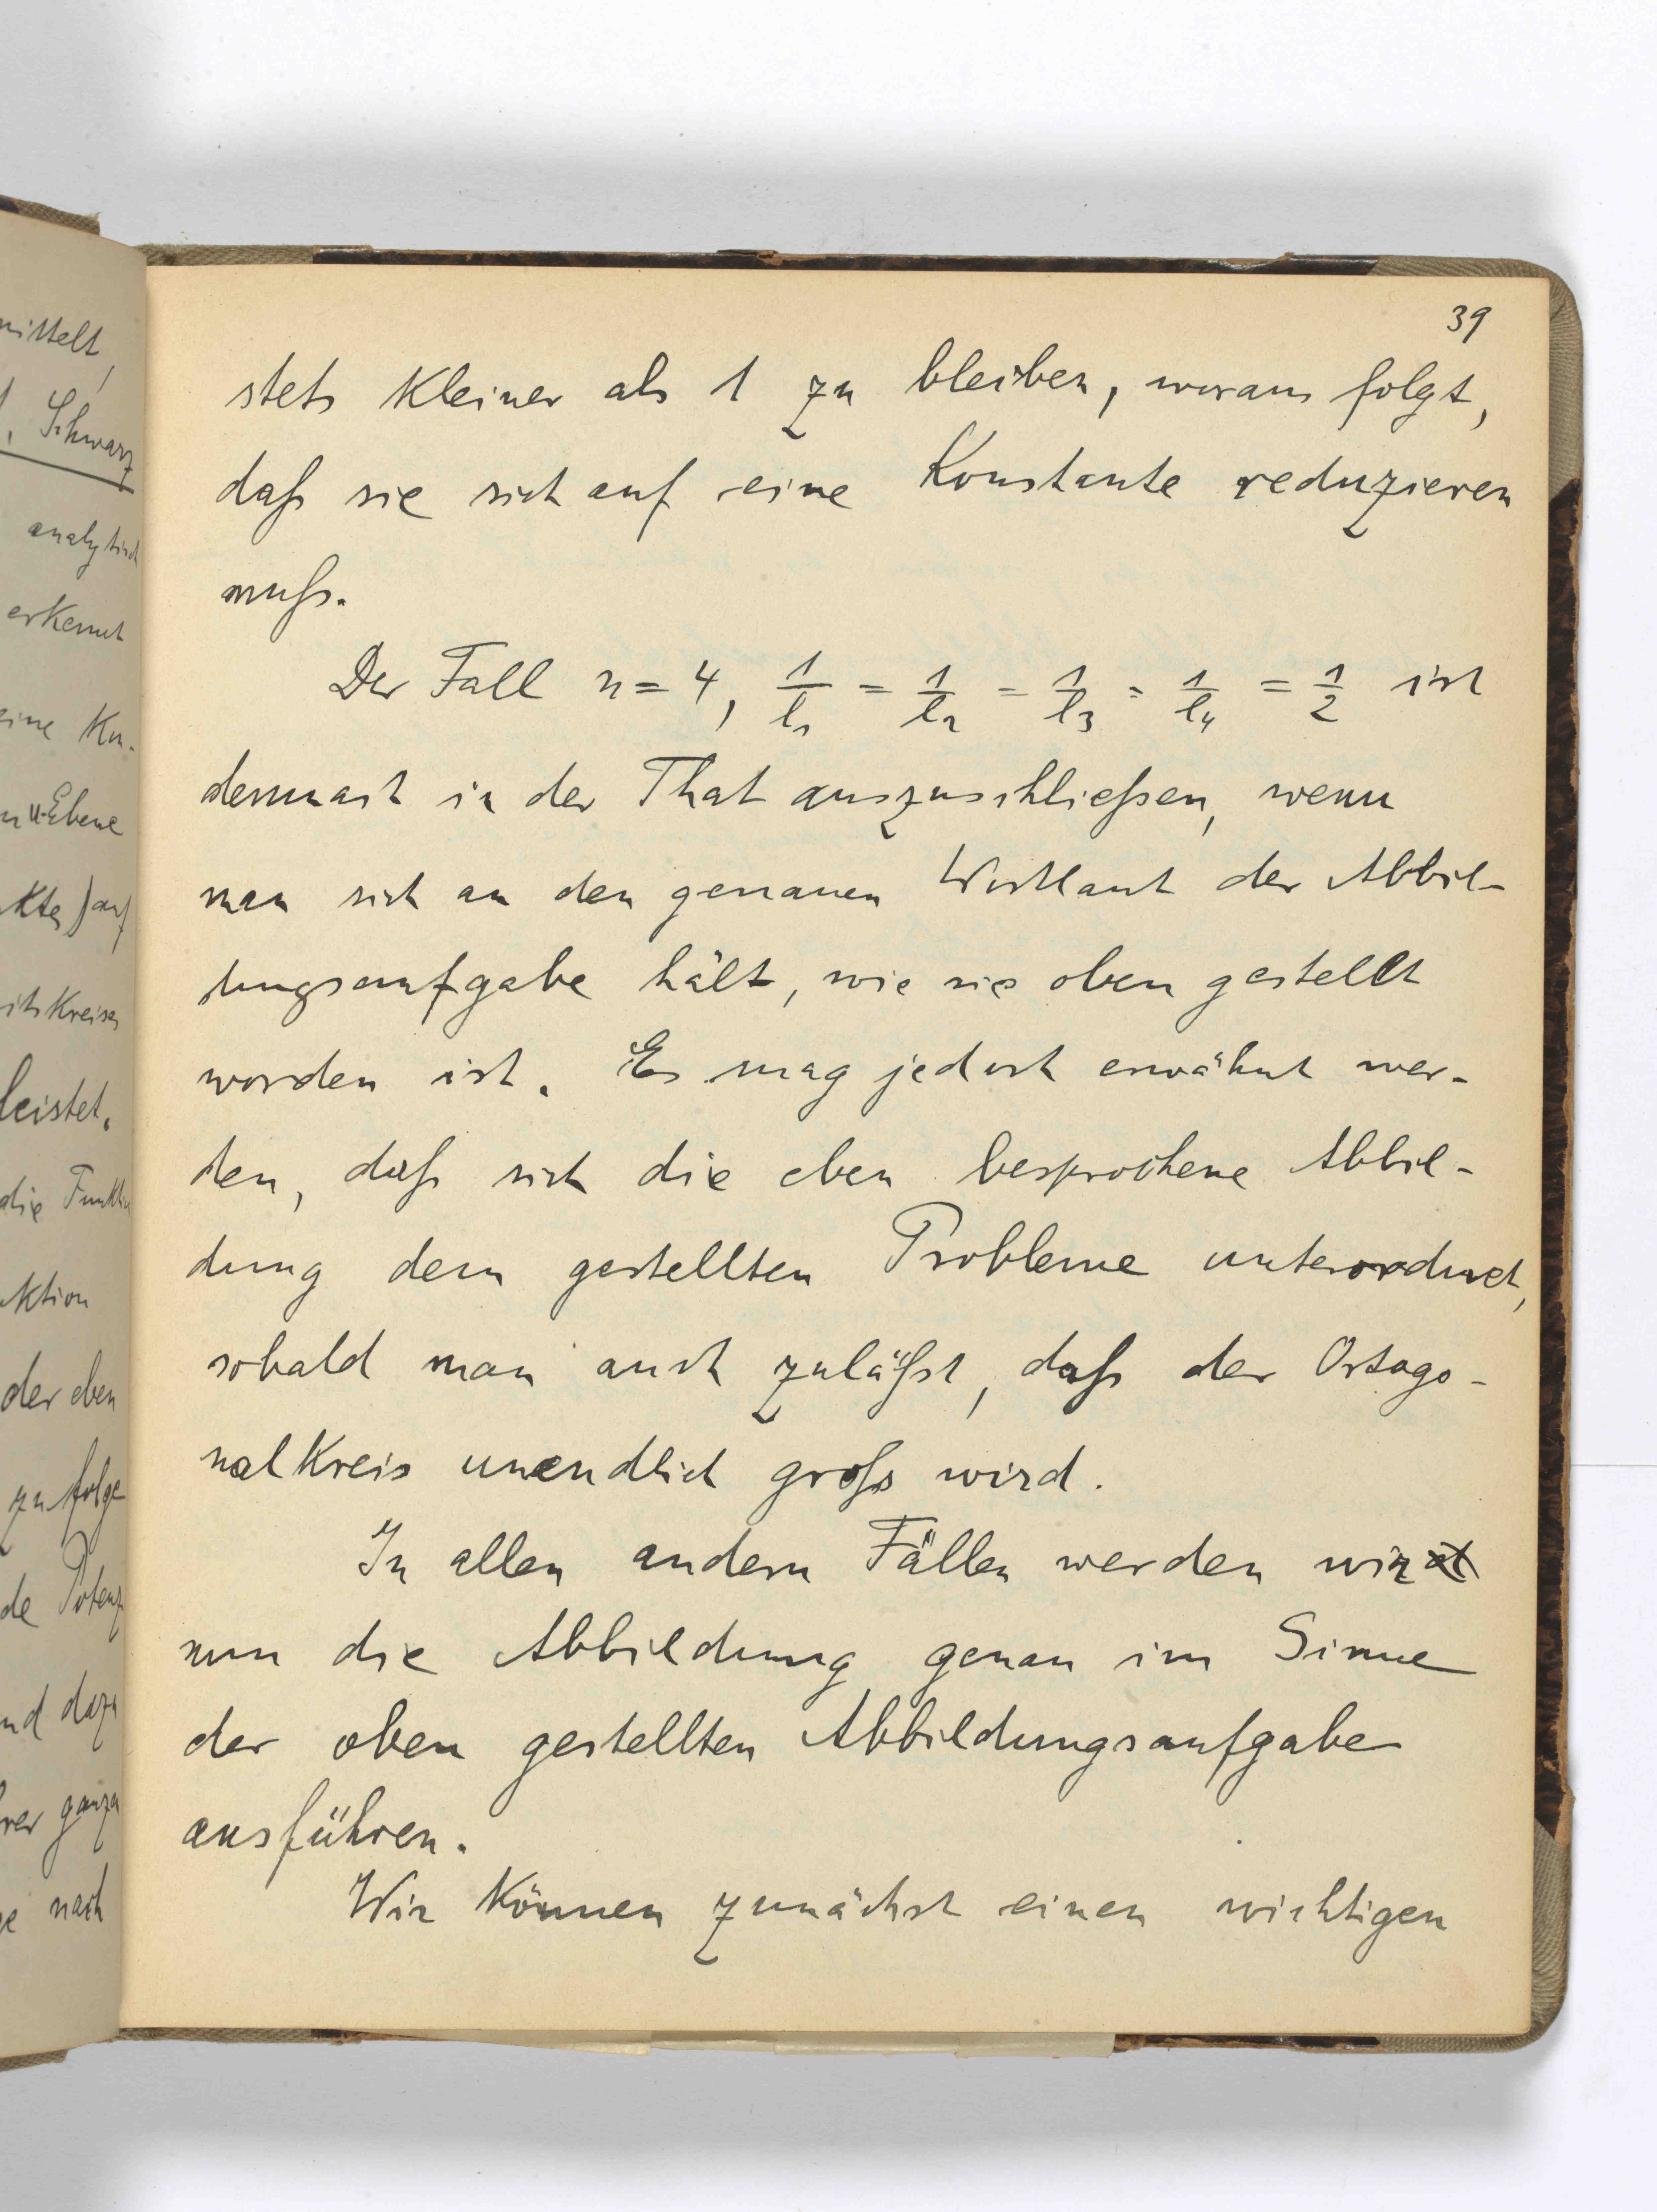 mittelt,
Schwarz
analytisch
erkennt
eine Ku-
u-Ebene
kte) auf
itskreises
leistet.
die Funktion
ktion
der eben
zufolge
de Potenz
und dazu
hrer ganzen
ge nach
39
stets kleiner als 1 zu bleiben, woraus folgt,
daß sie sich auf eine Konstante reduzieren
muß.
Der Fall n = 4, 1/l₁ = 1/l₂ = 1/l₃ = 1/l₄ = 1/2 ist
demnach in der That auszuschließen, wenn
man sich an den genauen Wortlaut der Abbil-
dungsaufgabe hält, wie sie oben gestellt
worden ist. Es mag jedoch erwähnt wer-
den, daß sich die eben besprochene Abbil-
dung dem gestellten Probleme unterordnet,
sobald man auch zuläßt, daß der Ortogo-
nalkreis unendlich groß wird.
In allen andern Fällen werden wir
nun die Abbildung genau im Sinne
der oben gestellten Abbildungsaufgabe
ausführen.
Wir können zunächst einen wichtigen